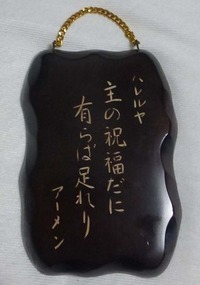 ハレルヤ
主の祝福だに
有らば足れり
アーメン